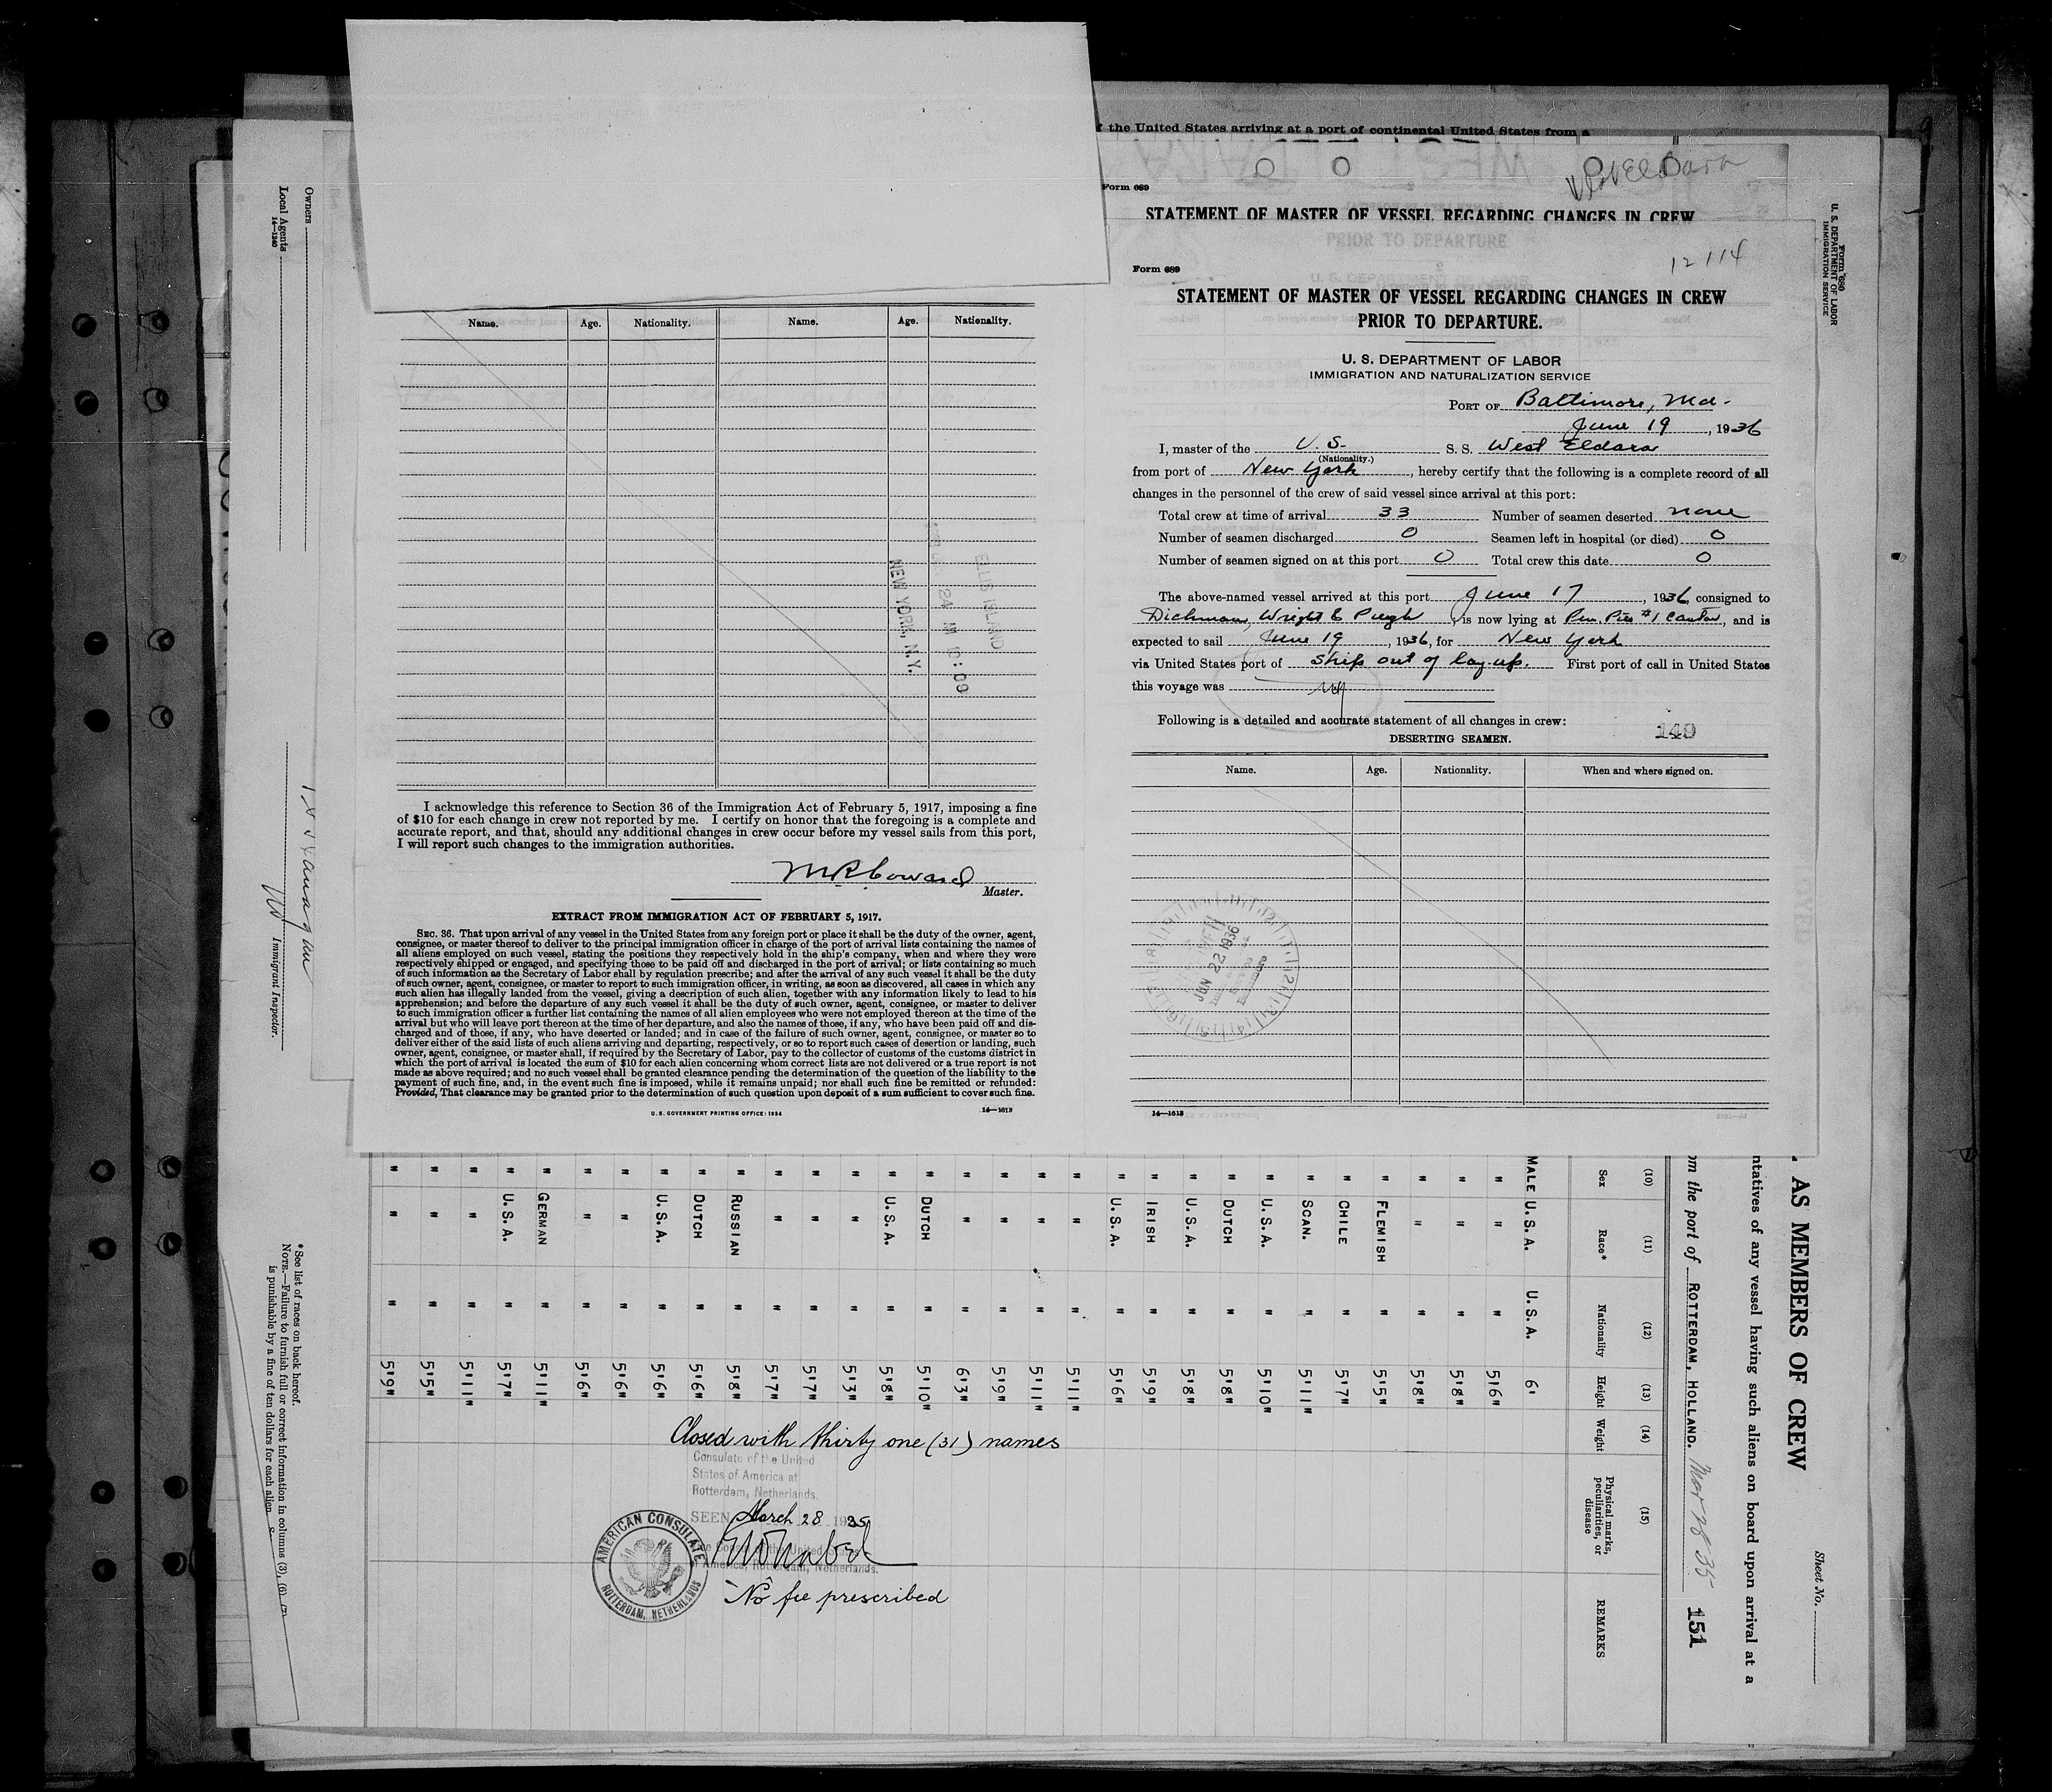 f the United States arriving at a port of continental United States from a
Form 689
STATEMENT OF MASTER OF VESSEL REGARDING CHANGES IN CREW
12114
Form 689
STATEMENT OF MASTER OF VESSEL REGARDING CHANGES IN CREW
PRIOR TO DEPARTURE.
U. S. DEPARTMENT OF LABOR
IMMIGRATION AND NATURALIZATION SERVICE
PORT OF Baltimore, Md.
June 19, 1936
I, master of the U. S. S. S. West Eldara
(Nationality.)
from port of New York, hereby certify that the following is a complete record of all
changes in the personnel of the crew of said vessel since arrival at this port:
Total crew at time of arrival 33 Number of seamen deserted none
Number of seamen discharged 0 Seamen left in hospital (or died) 0
Number of seamen signed on at this port 0 Total crew this date 0
The above-named vessel arrived at this port June 17, 1936, consigned to
Dichman, Wright & Pugh, is now lying at Pen. Pier #1 Canton, and is
expected to sail June 19, 1936, for New York
via United States port of Ship out of lay-up. First port of call in United States
this voyage was
Following is a detailed and accurate statement of all changes in crew:
149
DESERTING SEAMEN.
Name. Age. Nationality. When and where signed on.
JUN 22 1936
Baltimore
14—1613
Name. Age. Nationality. Name. Age. Nationality.
ELLIS ISLAND
24 AM 10:09
NEW YORK, N. Y.
I acknowledge this reference to Section 36 of the Immigration Act of February 5, 1917, imposing a fine
of $10 for each change in crew not reported by me. I certify on honor that the foregoing is a complete and
accurate report, and that, should any additional changes in crew occur before my vessel sails from this port,
I will report such changes to the immigration authorities.
M R Coward
Master.
EXTRACT FROM IMMIGRATION ACT OF FEBRUARY 5, 1917.
SEC. 36. That upon arrival of any vessel in the United States from any foreign port or place it shall be the duty of the owner, agent,
consignee, or master thereof to deliver to the principal immigration officer in charge of the port of arrival lists containing the names of
all aliens employed on such vessel, stating the positions they respectively hold in the ship's company, when and where they were
respectively shipped or engaged, and specifying those to be paid off and discharged in the port of arrival; or lists containing so much
of such information as the Secretary of Labor shall by regulation prescribe; and after the arrival of any such vessel it shall be the duty
of such owner, agent, consignee, or master to report to such immigration officer, in writing, as soon as discovered, all cases in which any
such alien has illegally landed from the vessel, giving a description of such alien, together with any information likely to lead to his
apprehension; and before the departure of any such vessel it shall be the duty of such owner, agent, consignee, or master to deliver
to such immigration officer a further list containing the names of all alien employees who were not employed thereon at the time of the
arrival but who will leave port thereon at the time of her departure, and also the names of those, if any, who have been paid off and dis-
charged and of those, if any, who have deserted or landed; and in case of the failure of such owner, agent, consignee, or master so to
deliver either of the said lists of such aliens arriving and departing, respectively, or so to report such cases of desertion or landing, such
owner, agent, consignee, or master shall, if required by the Secretary of Labor, pay to the collector of customs of the customs district in
which the port of arrival is located the sum of $10 for each alien concerning whom correct lists are not delivered or a true report is not
made as above required; and no such vessel shall be granted clearance pending the determination of the question of the liability to the
payment of such fine, and, in the event such fine is imposed, while it remains unpaid; nor shall such fine be remitted or refunded:
Provided, That clearance may be granted prior to the determination of such question upon deposit of a sum sufficient to cover such fine.
U. S. GOVERNMENT PRINTING OFFICE: 1934 14—1613
Form 680
U. S. DEPARTMENT OF LABOR
IMMIGRATION SERVICE
AS MEMBERS OF CREW
Sheet No.
ntatives of any vessel having such aliens on board upon arrival at a
om the port of ROTTERDAM, HOLLAND. Mar 28 35 151
(10) (11) (12) (13) (14) (15)
Sex Race* Nationality Height Weight Physical marks, peculiarities, or disease REMARKS
MALE U.S.A. U.S.A. 6'
" " " 5'6"
" " " 5'8"
" " " 5'8"
" FLEMISH " 5'5"
" CHILE " 5'7"
" SCAN. " 5'11"
" U.S.A. " 5'10"
" DUTCH " 5'8"
" U.S.A. " 5'8"
" IRISH " 5'9"
" U.S.A. " 5'6"
" " " 5'11"
" " " 5'11"
" " " 5'9"
" " " 6'3"
" DUTCH " 5'10"
" U.S.A. " 5'8"
" " " 5'3"
" " " 5'7"
" " " 5'7"
" RUSSIAN " 5'8"
" DUTCH " 5'6"
" U.S.A. " 5'6"
" " " 5'6"
" " " 5'6"
" GERMAN " 5'11"
" U.S.A. " 5'7"
" " " 5'11"
" " " 5'5"
" " " 5'9"
Closed with thirty one (31) names
Consulate of the United
States of America at
Rotterdam, Netherlands.
SEEN March 28 1935
of America, Rotterdam, Netherlands.
No fee prescribed
AMERICAN CONSULATE
ROTTERDAM, NETHERLANDS
Owners
Local Agents
14—1240
Immigrant Inspector.
* See list of races on back hereof.
NOTE.—Failure to furnish full or correct information in columns (3), (6), (7)
is punishable by a fine of ten dollars for each alien.